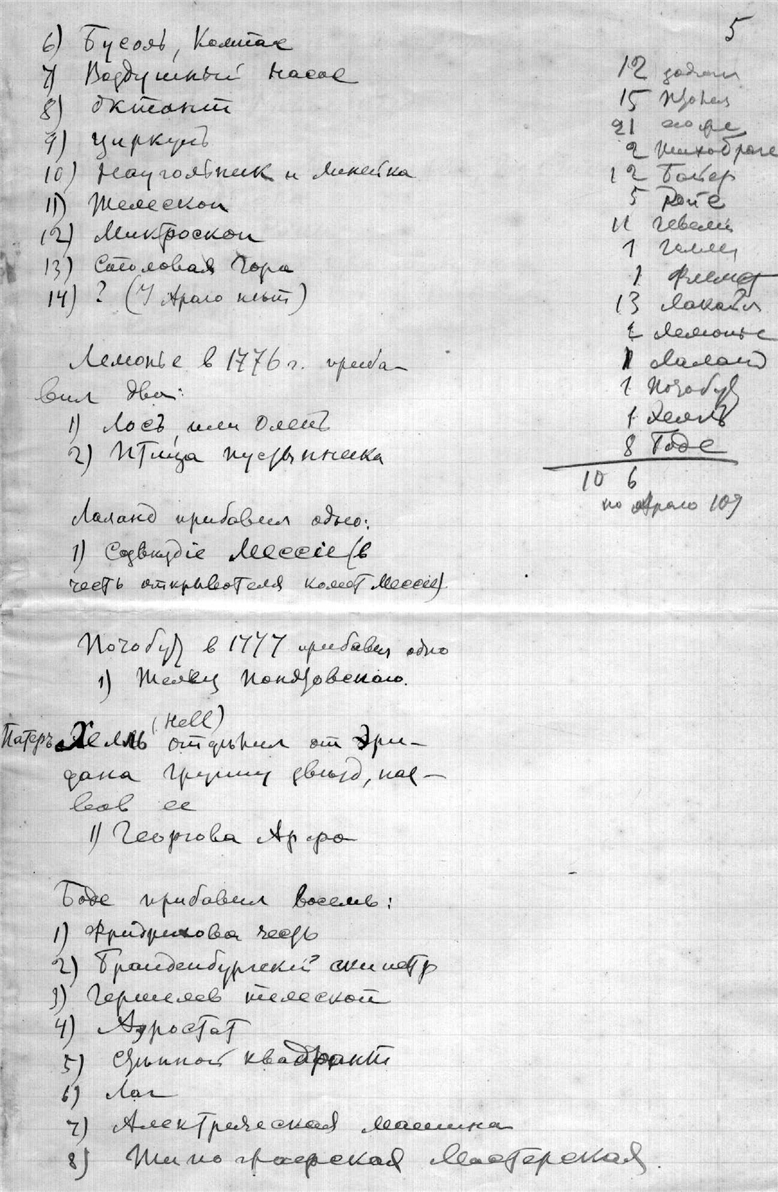 5
6) Бусоль, Компас
7) Воздушный насос
8) Октант
9) Циркуль
10) Наугольник и линейка
11) Телескоп
12) Микроскоп
13) Столовая Гора
14) ? (У Араго нет)
Лемонье в 1776 г. приба-
вил два:
1) Лось, или Олень
2) Птица пустынника
Лаланд прибавил одно:
1) Созвездiе Мессiе (в
честь открывателя комет Мессiе)
Почобут в 1777 прибавил одно
1) Телец Понятовского.
(Hell)
Патеръ Хелль отделил от Эри-
дана группу звезд, наз-
вав ее
1) Георгова Арфа
Боде прибавил восемь:
1) Фридрихова честь
2) Бранденбургский скипетр
3) Гершелев телескоп
4) Аэростат
5) Стѣнной квадрант
6) Лаг
7) Электрическая машина
8) Типографская Мастерская.
12 зодиак
15
21
2 Тихобраге
12 Байер
5
11 Гевель
1
1
13 Лакайл
2 Лемонье
1 Лаланд
1 Почобут
1 Хелль
8 Боде
106
по Араго 109